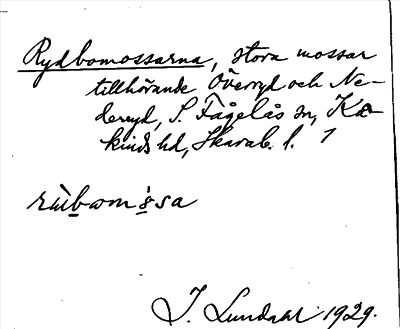 Rydbomossarna, stora mossar
tillhörande Överryd och Ne-
derryd, S. Fågelås sn, Ka-
kinds hd, Skarab. l. 1
rùbomòsa
J. Lundahl 1929.